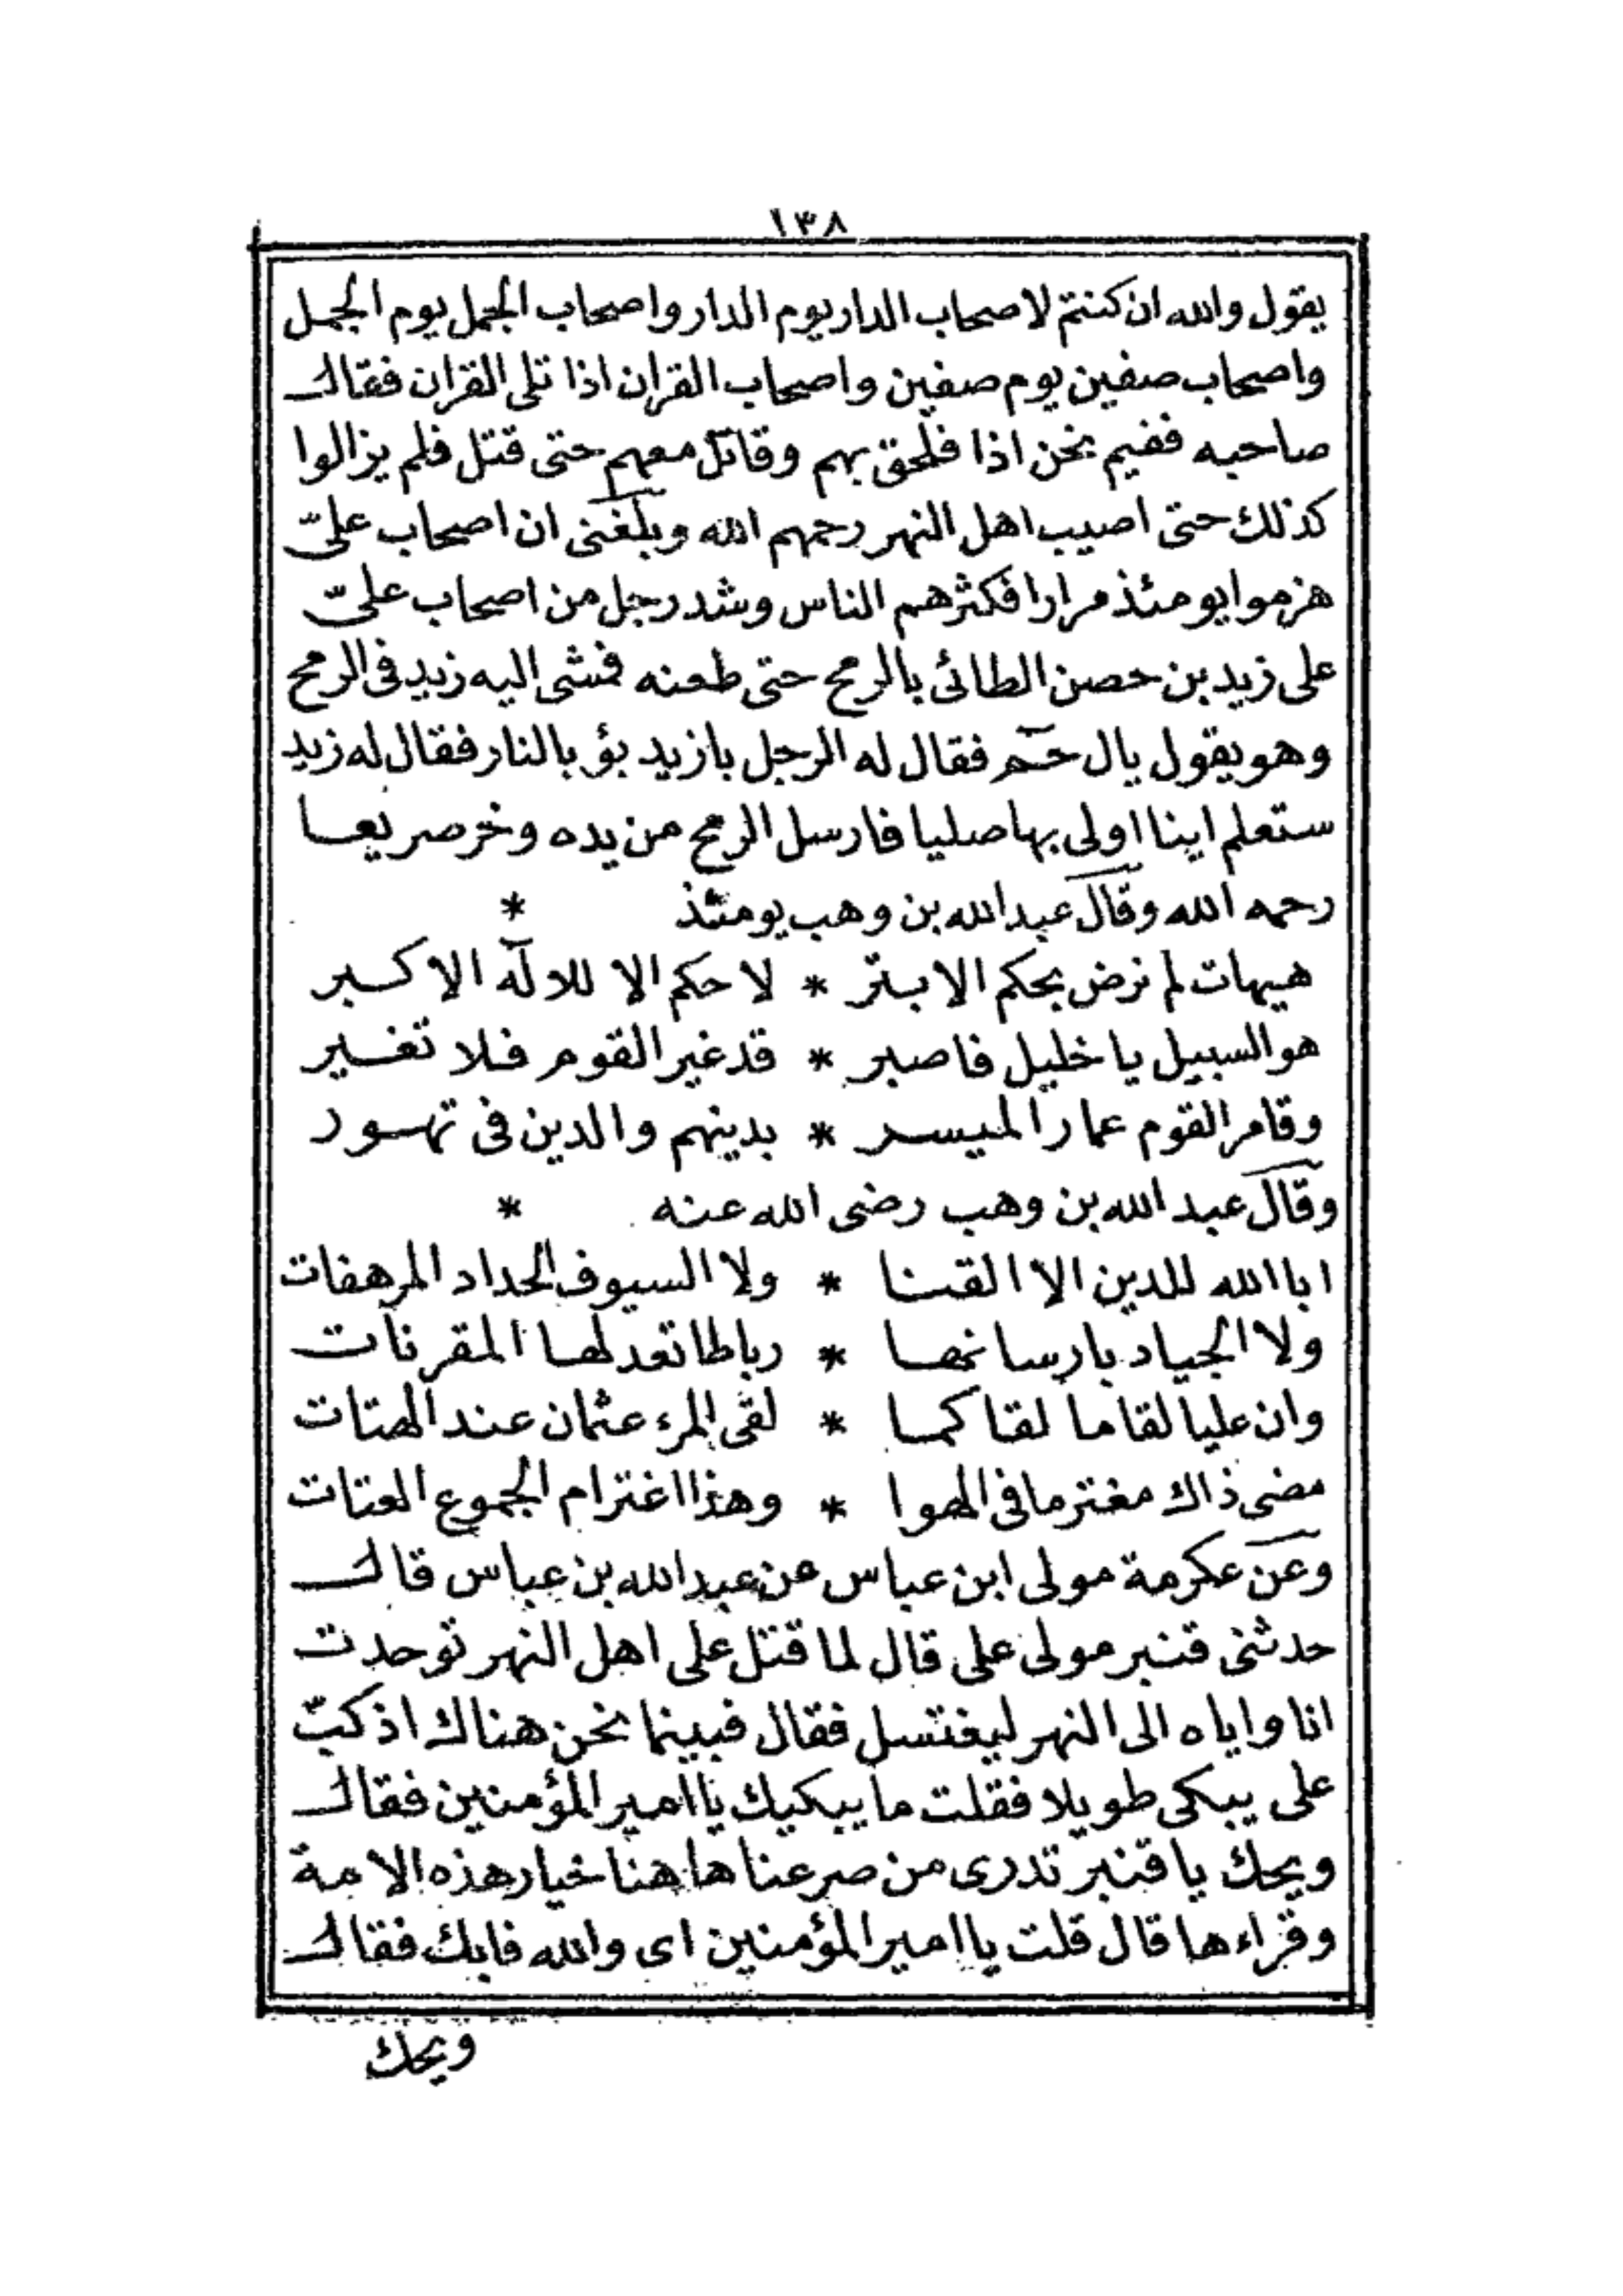 ١٣٨
يقول والله ان كنتم لاصحاب الدار يوم الدار واصحاب الجمل يوم الجمل
واصحاب صفين يوم صفين واصحاب القران اذا تلى القران فقال
صاحبه ففيم نحن اذا فلحق بهم وقاتل معهم حتى قتل فلم يزالوا
كذلك حتى اصيب اهل النهر رحمهم الله وبلغنى ان اصحاب علىّ
هزموا يومئذ مرارا فكثرهم الناس وشد رجل من اصحاب علىّ
على زيد بن حصن الطائى بالرمح حتى طعنه فمشى اليه زيد فى الرمح
وهو يقول يال حـم فقال له الرجل يازيد بؤ بالنار فقال له زيد
ستعلم اينا اولى بها صليا فارسل الرمح من يده وخر صريعا
رحمه الله وقال عبد الله بن وهب يومئذ *
هيهات لم نرض بحكم الابتر * لا حكم الا للاله الاكبر
هو السبيل يا خليل فاصبر * قد غير القوم فلا تغير
وقامر القوم عمار الميسر * بدينهم والدين فى تهور
وقال عبد الله بن وهب رضى الله عنه *
ابا الله للدين الا القنا * ولا السيوف الحداد المرهفات
ولا الجياد بارسانها * رباطا تعد لها المقرنات
وان عليا لقا ما لقا كما * لقى المرء عثمان عند الهتات
مضى ذاك مغترما فى الهوا * وهذا اغترام الجموع العتات
وعن عكرمة مولى ابن عباس عن عبد الله بن عباس قال
حدثنى قنبر مولى على قال لما قتل على اهل النهر توحدت
انا واياه الى النهر ليغتسل فقال فبينما نحن هناك اذ كبّ
على يبكى طويلا فقلت ما يبكيك يا امير المؤمنين فقال
ويحك يا قنبر تدرى من صرعنا هاهنا خيار هذه الامة
وقراءها قال قلت يا امير المؤمنين اى والله فابك فقال
ويحك